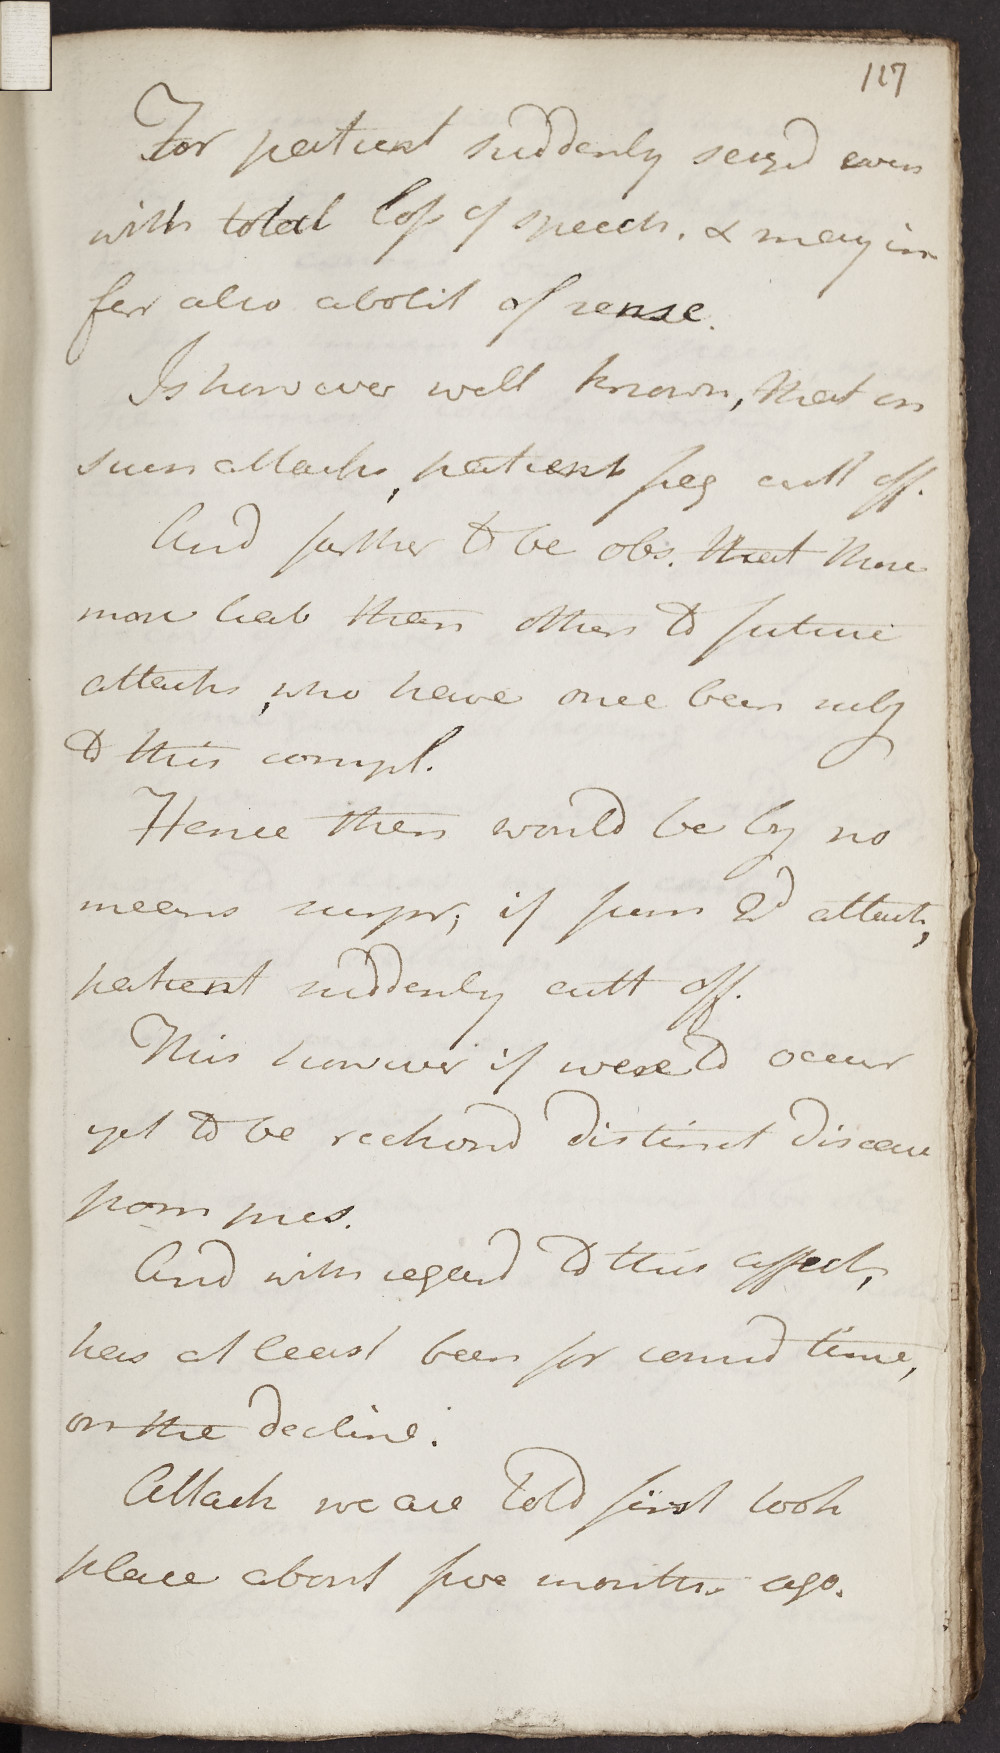 117
For patient suddenly seizd even
with total loss of speech. & may in
fer also abolit of sense.
Is however well known, that in
such attacks, patient freq cutt off.
And farther to be obs. that those
more liab than others to future
attacks, who have once been subj
to this compl.
Hence then would be by no
means surpr; if from 2d attack,
patient suddenly cutt off.
This however if were to occur
yet to be reckond distinct disease
from pres.
And with regard to this affect,
has at least been for considd time,
on the decline.
Attack we are told first took
place about five months ago.